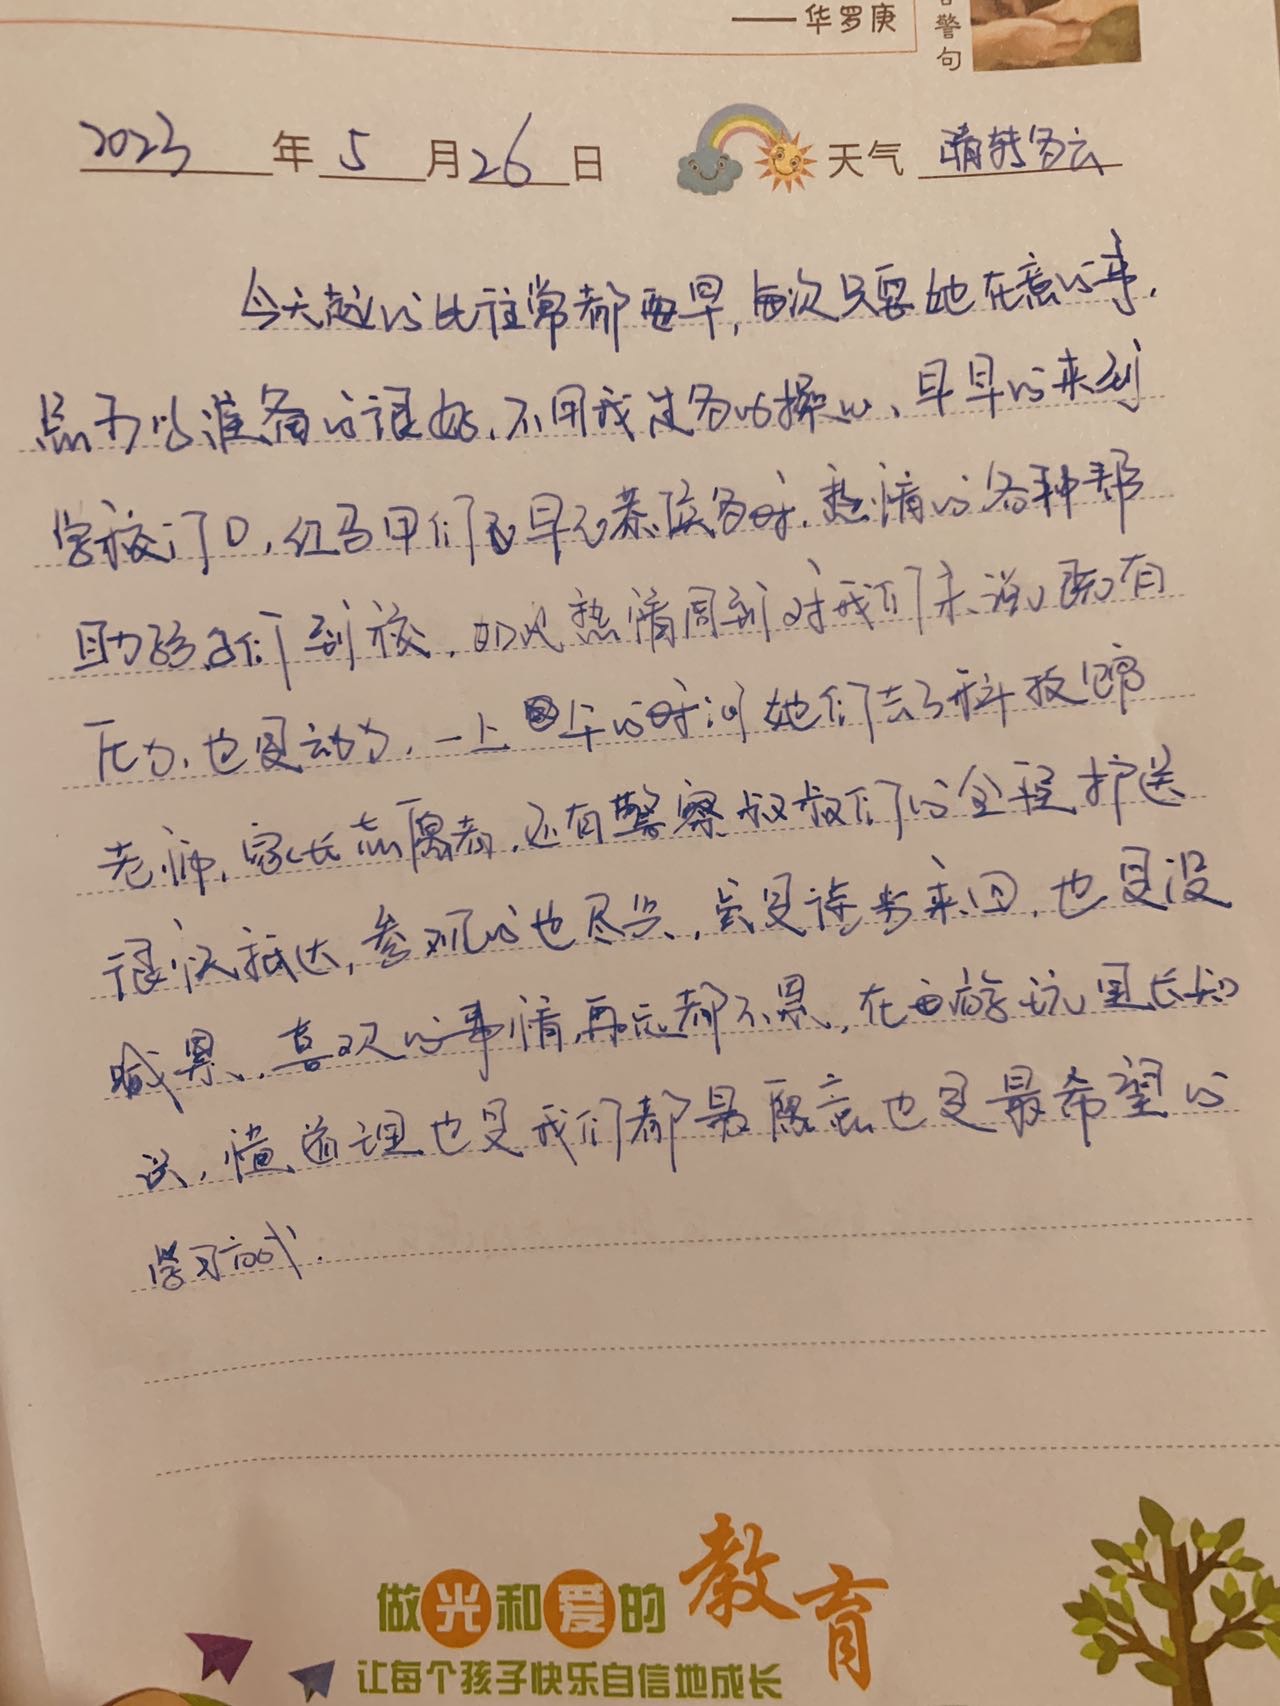 ——华罗庚
警句
2023年5月26日 天气 晴转多云
今天起的比往常都要早,每次只要她在意的事,
总可以准备的很好,不用我过多的操心、早早的来到
学校门口,红马甲们也早已恭候多时,热情的各种帮
助孩子们到校,如此热情周到对我们来说既有
压力,也是动力,一上午的时间她们去了科技馆
老师,家长志愿者,还有警察叔叔们的全程护送
很快抵达,参观的也尽兴,虽是徒步来回,也是没
喊累,喜欢的事情再远都不累,在游玩里长知
识,懂道理也是我们都最愿意也是最希望的
学习方式.
做光和爱的教育
让每个孩子快乐自信地成长